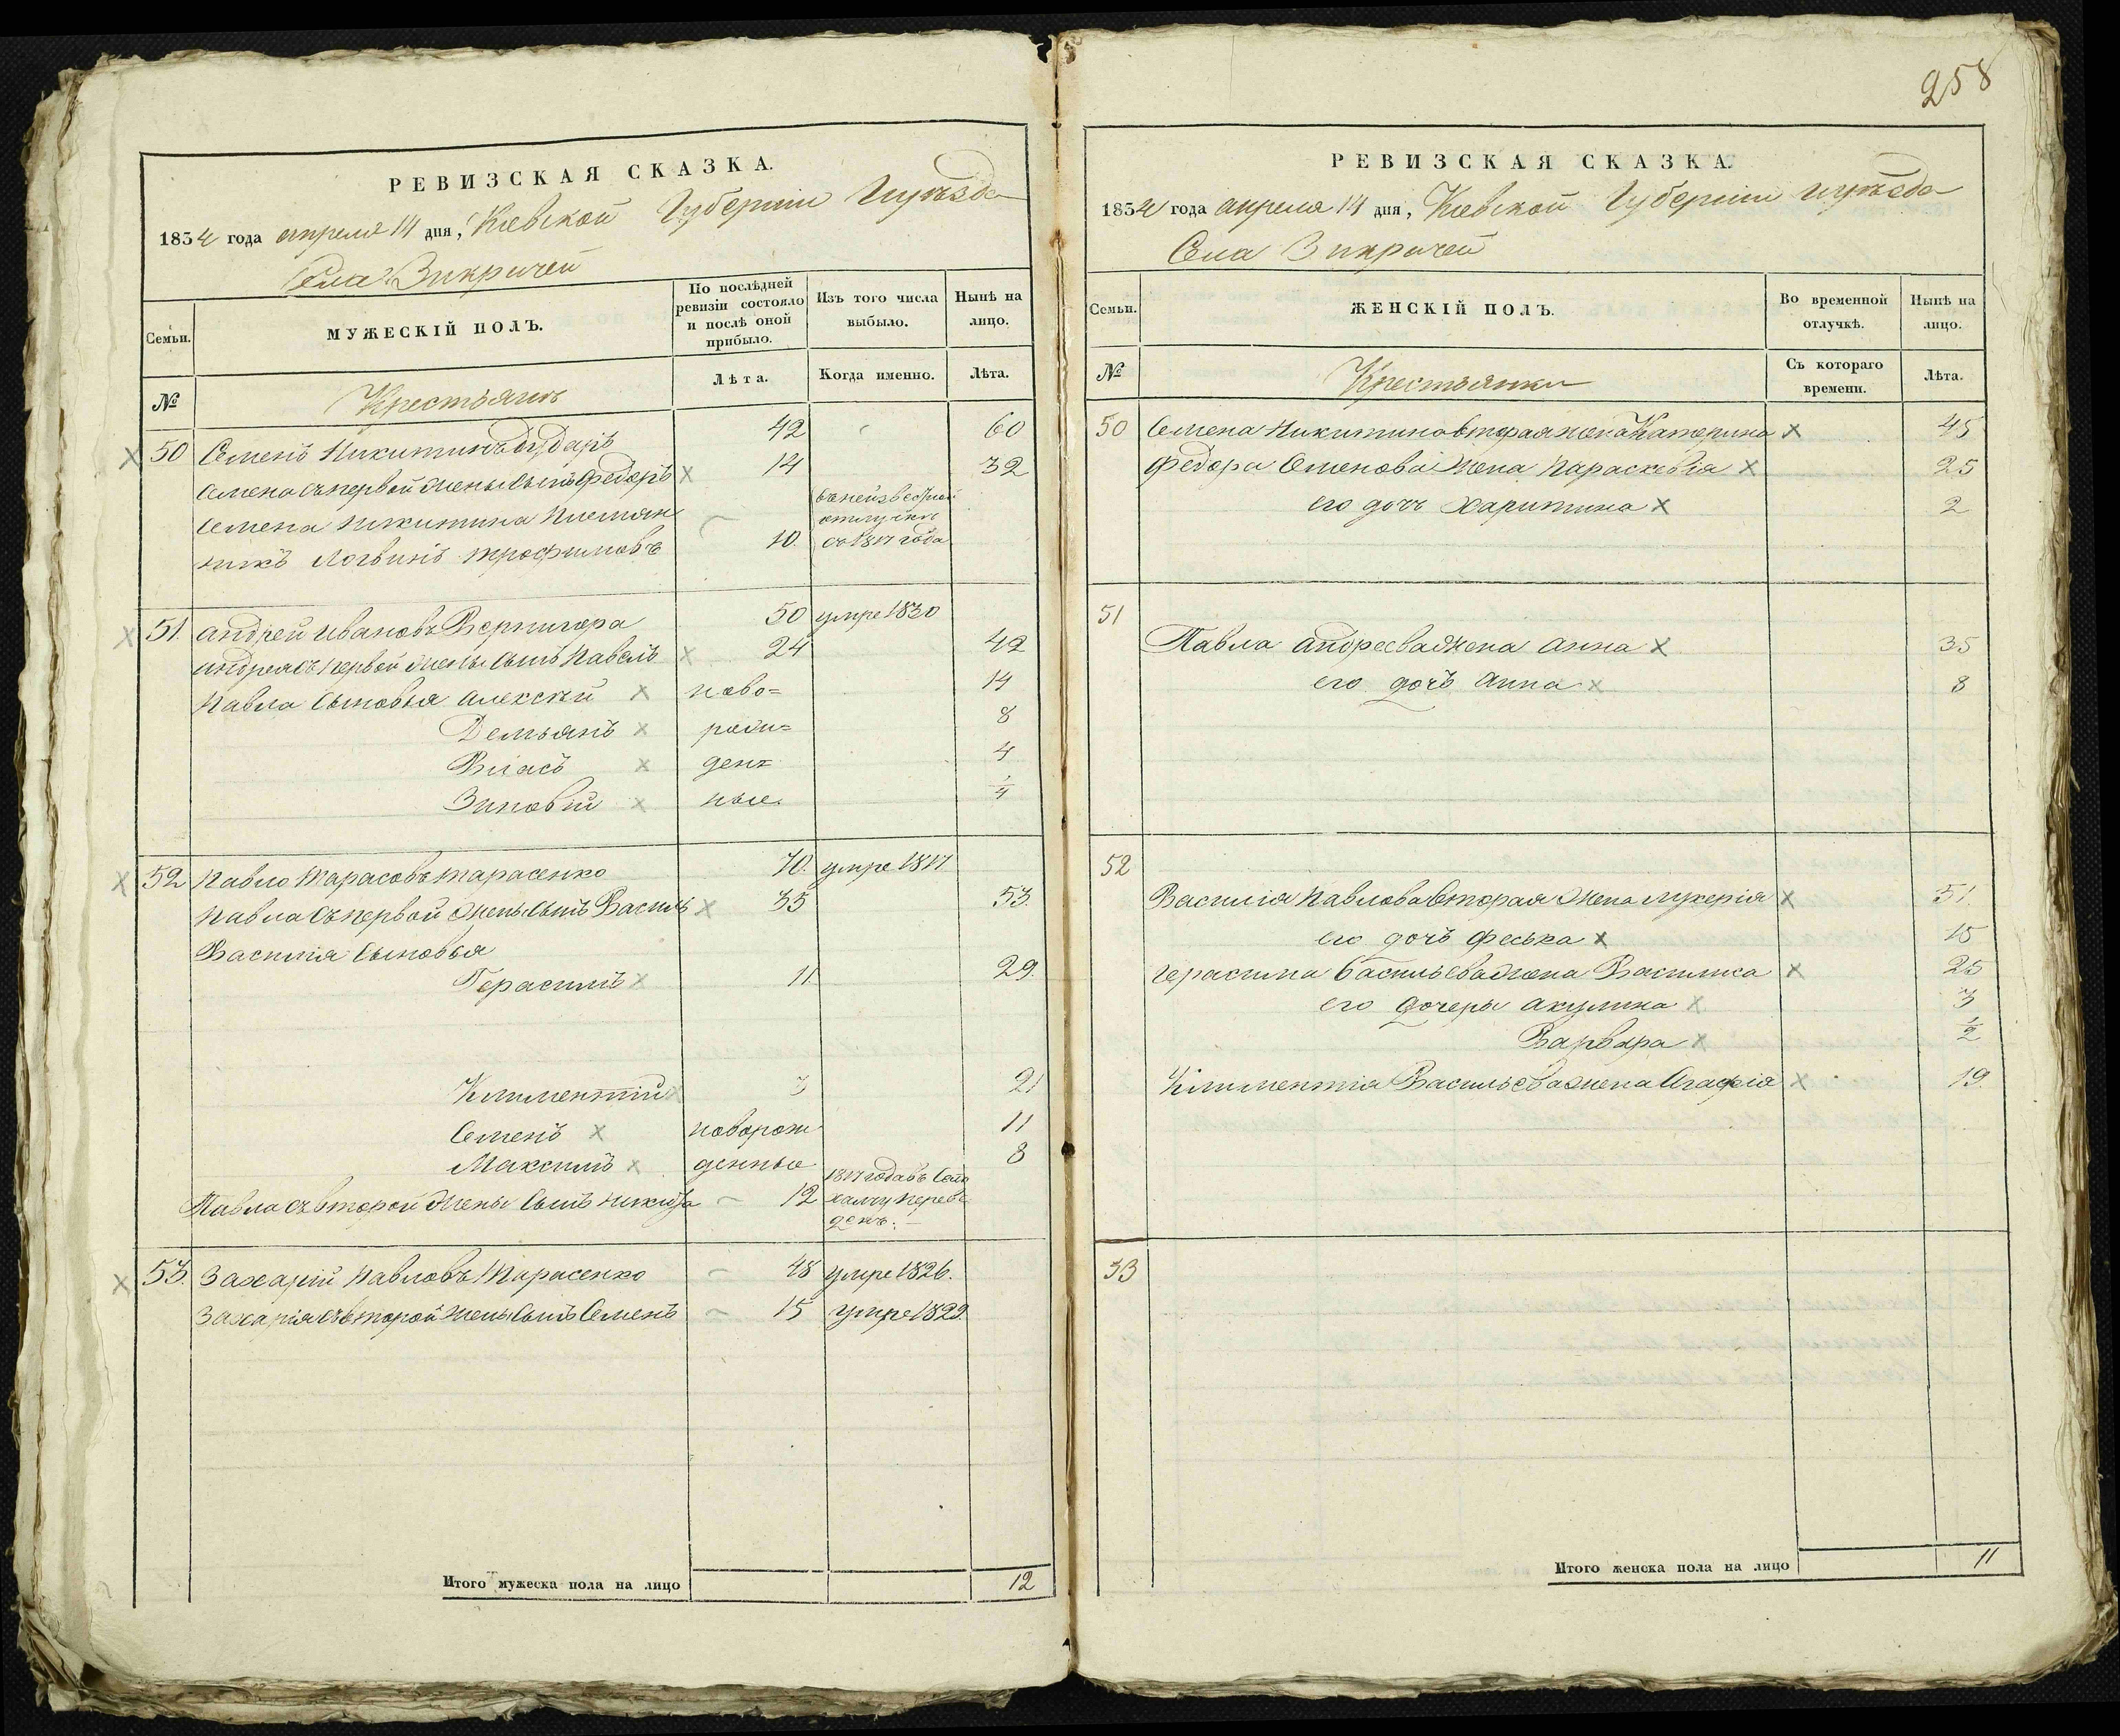 258
РЕВИЗСКАЯ СКАЗКА.
1834 года апреля 14 дня, Кіевской Губерніи и уѣзда
Села Викричей
Семьи.
МУЖЕСКІЙ ПОЛЪ.
По послѣдней ревизіи состояло и послѣ оной прибыло.
Изъ того числа выбыло.
Нынѣ на лицо.
№
Крестьянъ
Лѣта.
Когда именно.
Лѣта.
50 Семенъ Никитинъ Дударь 42 60
Семена съ первой жены сынъ Федоръ 14 32
Семена Никитина племян
никъ Логвинъ Трофимовъ 10. въ неизвесной отлучки съ 1817 года
51. Андрей Ивановъ Вернигора 50 умре 1830
Андрея съ первой жены сынъ Павелъ 24 42
Павла сыновья Алексѣй ново= 14
Демьянъ рожи= 8
Власъ ден= 4
Зиновій ные. 1/4
52 Павло Тарасовъ Тарасенко 70. умре 1817
Павла съ первой жены сынъ Василь 35 53.
Василія сыновья
Герасимъ 11 29.
Климентій 3 21
Семенъ новорож 11
Максимъ денные 8
Павла съ второй жены сынъ Никита 12 1817 года въ переве денъ.
53. Захарій Павловъ Тарасенко 48 умре 1826.
Захарія съ второй жены сынъ Семенъ 15 умре 1829.
Итого мужеска пола на лицо 12
РЕВИЗСКАЯ СКАЗКА.
1834 года апреля 14 дня, Кіевской Губерніи и уѣзда
Села Викричей
Семьи.
ЖЕНСКІЙ ПОЛЪ.
Во временной отлучкѣ.
Нынѣ на лицо.
№
Крестьянки
Съ котораго времени.
Лѣта.
50 Семена Никитина вторая жена Катерина 45
Федора Семенова жена Параскевія 25
его дочъ Харитина 2
51
Павла Андреева жена Анна 35
его дочъ Анна 8
52
Василія Павлова вторая жена Лукерія 51.
его дочъ Феська 15
Герасима Васильева жена Василиса 25
его дочеры Акулина 3
Варвара 1/2
Климентія Васильева жена Агафія 19.
53
Итого женска пола на лицо 11